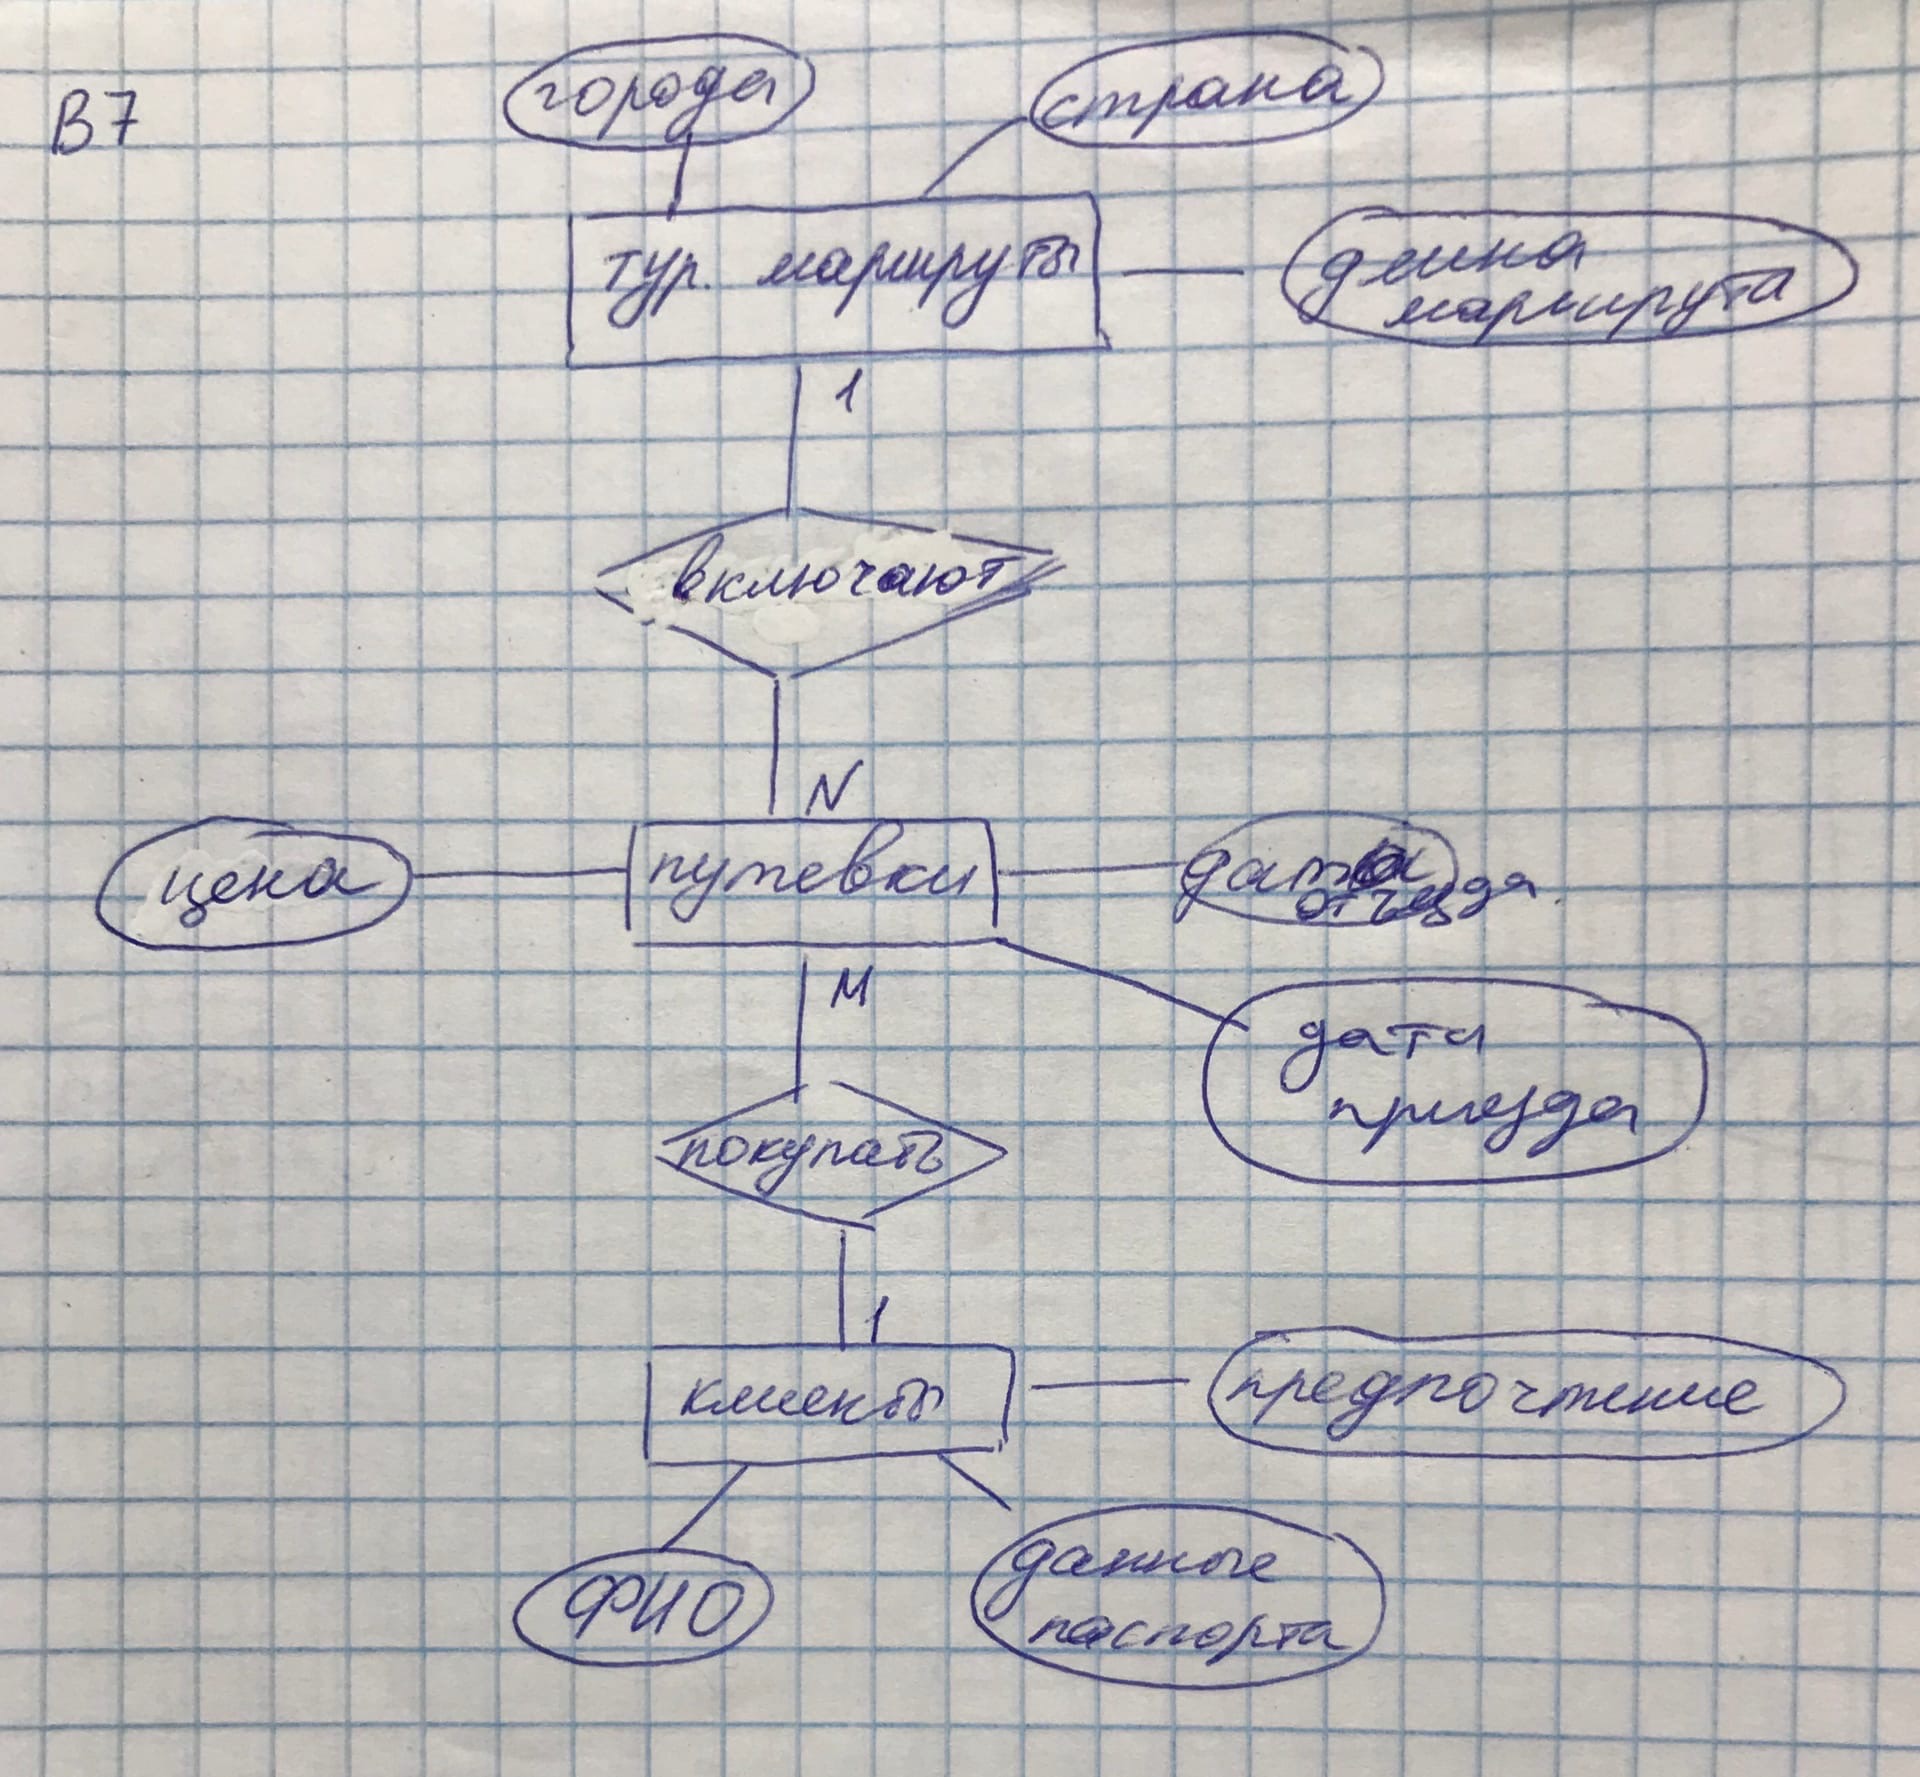 В7
города
страна
тур. маршруты
длина
маршрута
1
включают
N
цена
путевки
дата
отъезда
М
дата
приезда
покупать
1
клиенты
предпочтение
ФИО
данные
паспорта